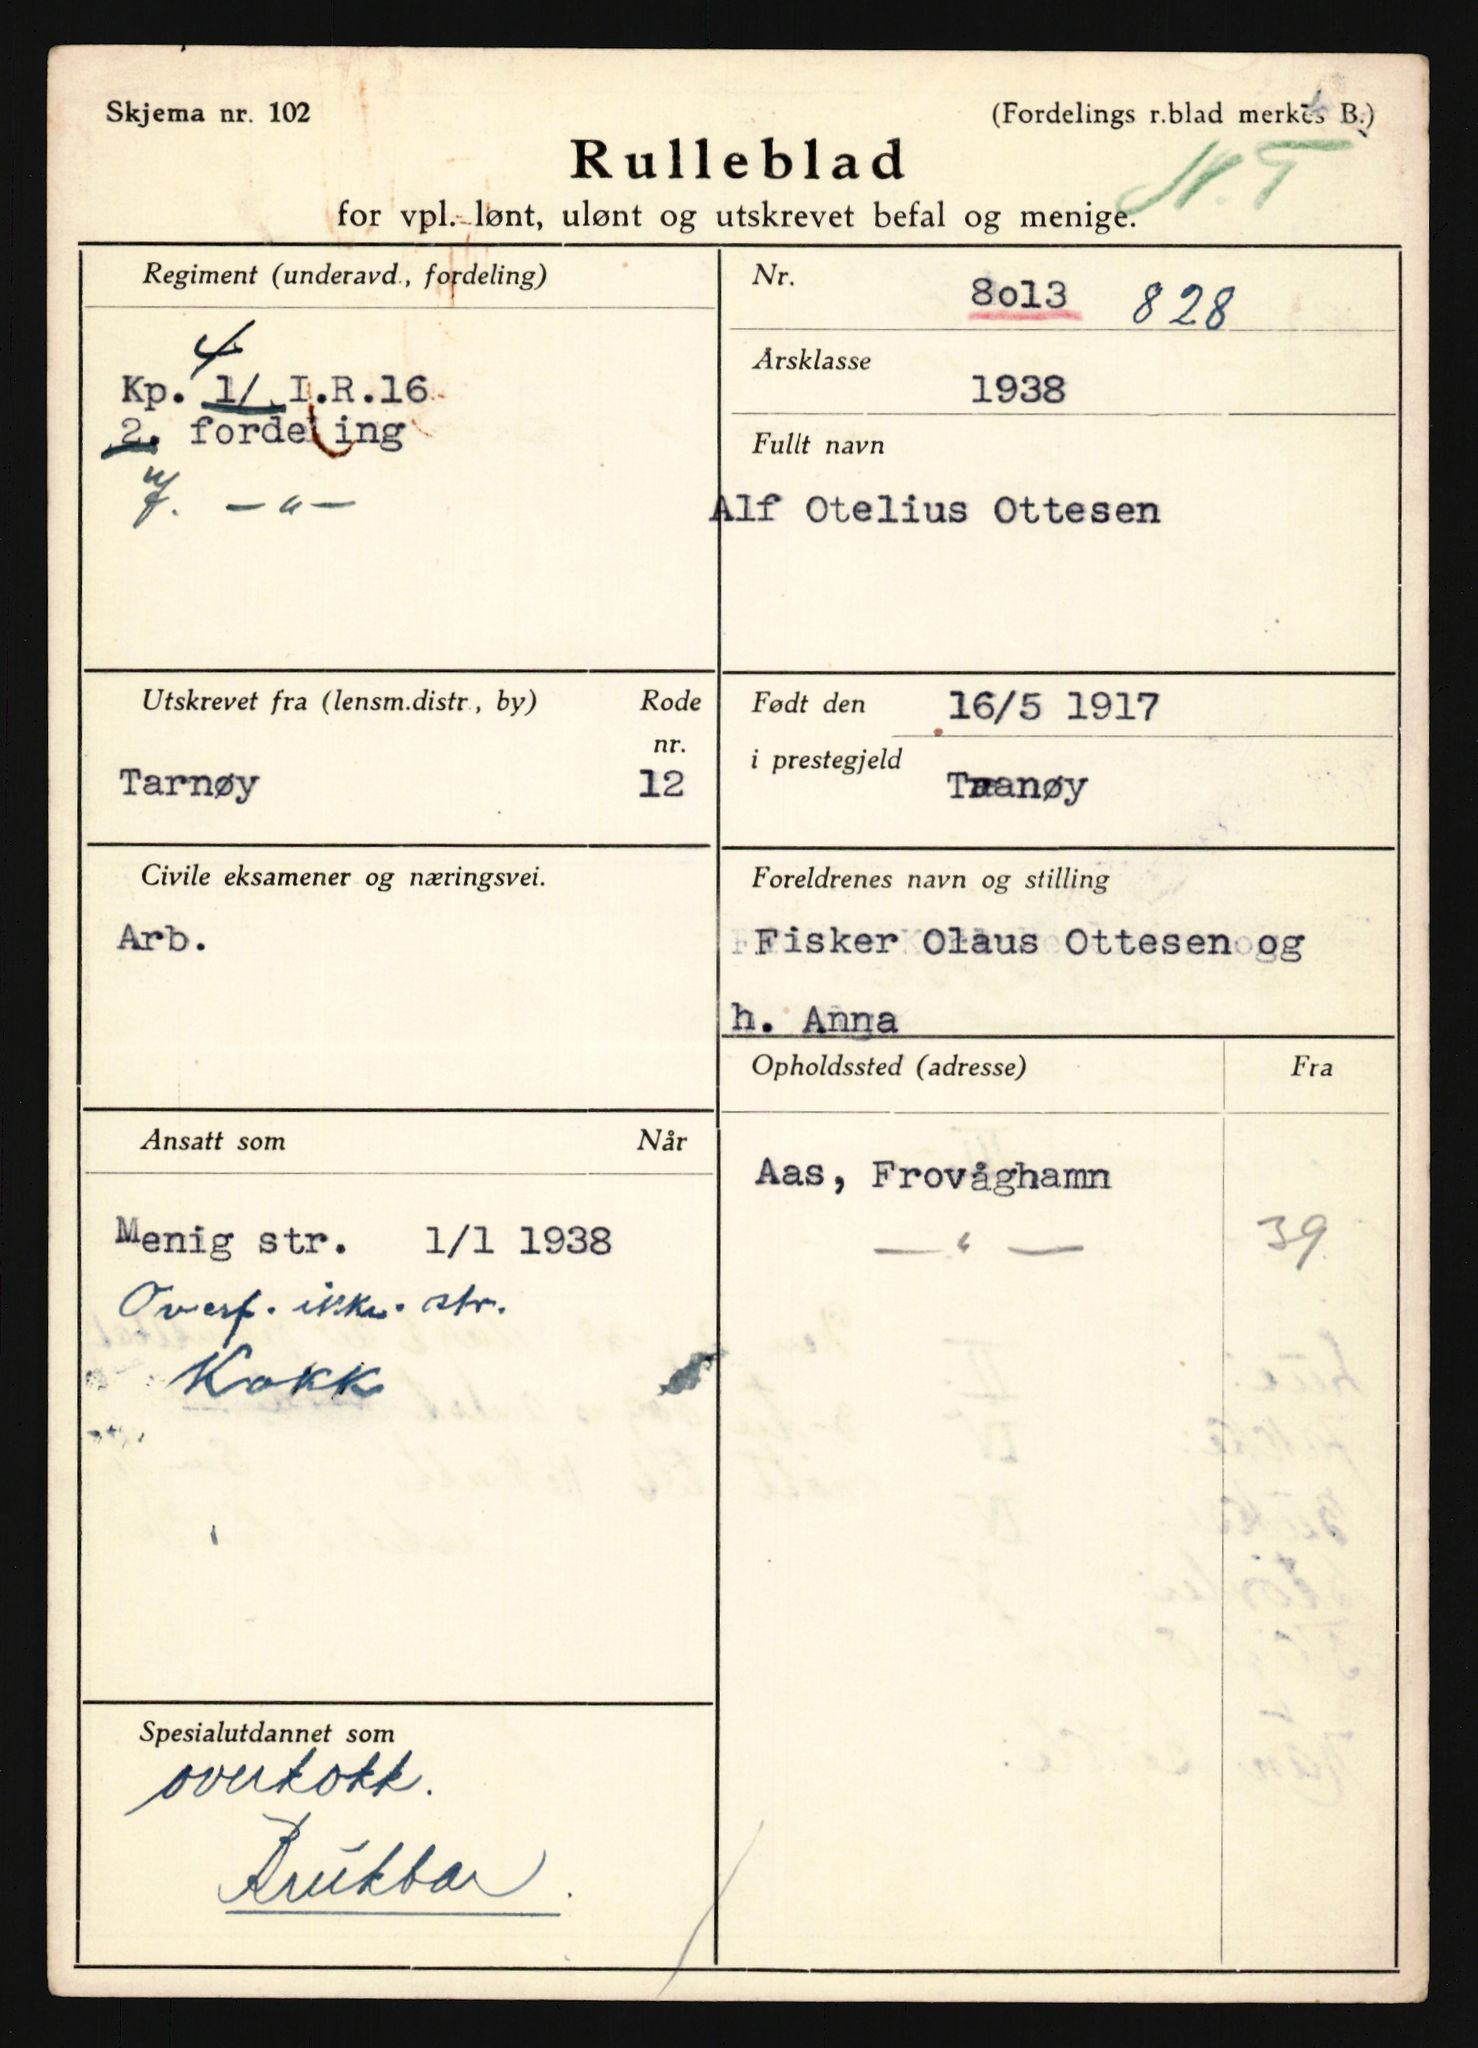 Skjema nr. 102
(Fordelings r.blad merkes B.)
Rulleblad
N.T
for vpl. lønt, ulønt og utskrevet befal og menige.
Regiment (underavd., fordeling)
4
Kp. 1/ I.R.16
2. fordeling
— " —
Nr.
8o13 828
Årsklasse
1938
Fullt navn
Alf Otelius Ottesen
Utskrevet fra (lensm.distr., by)
Rode
nr.
Tarnøy
12
Født den
16/5 1917
i prestegjeld
Tranøy
Civile eksamener og næringsvei.
Arb.
Foreldrenes navn og stilling
Fisker Olaus Ottesen og
h. Anna
Opholdssted (adresse)
Fra
Aas, Frovåghamn
— " —
39
Ansatt som
Når
Menig str. 1/1 1938
Overf. ikke. str.
Kokk
Spesialutdannet som
overkokk.
Brukbar.